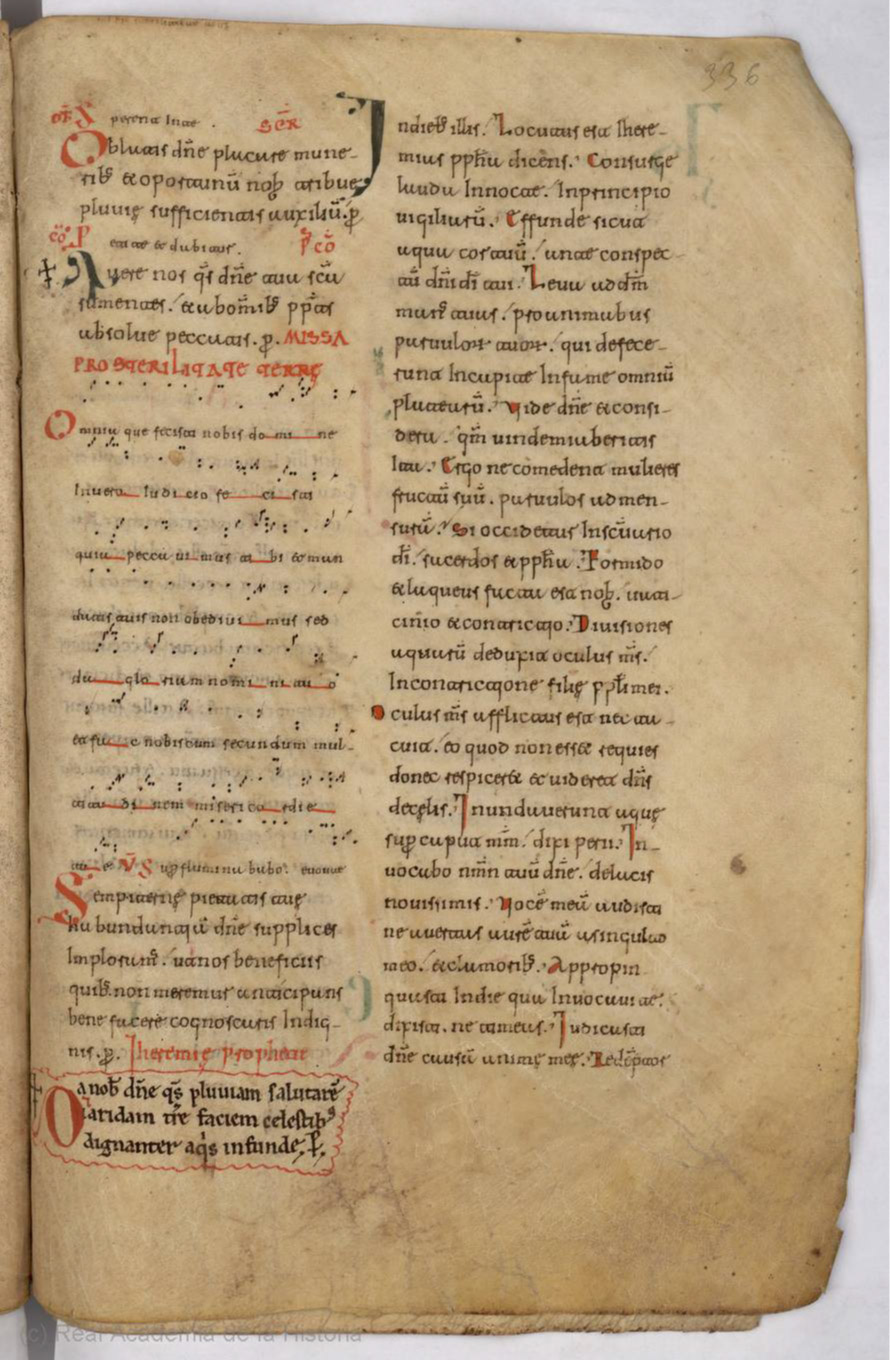 of̄f Sperent in te . SCR̄
Oblatis dñe placare mune-
ribꝫ & oportunū nob̄ tribue
pluuię sufficientis auxiliū. p̄
cō P etite & dabitur. p̄ cō
Tuere nos q̄s dñe tua scā
sumentes. & ab om̄ibꝫ pp̄tis
absolue peccatis. p. MISSA
PRO STERILITATE TERRĘ
Omnia que fecisti nobis do mi ne
In uero Iudicio fe ci sti
quia peccaui mus ti bi & man
datis tuis non obediui mus sed
da glo riam nomi ni tu o
& fa c nobiscum secundum mul-
titu di nem miserico rdie
tu e V̄S Sup flumina babi. euouae
Sempiternę pietatis tuę
habundantiā dñe supplices
Imploram̄. ut nos beneficiis
quibꝫ non meremur anticipans
bene facere cognoscaris Indig-
nis. p. Iheremię prophetę
Da nob̄ dñe q̄s pluuiam salutarē
& aridam tr̄e faciem celestibꝰ
dignanter aqis infunde. P.
336
In diebꝫ illis. Locutus est Ihere-
mias pph̄a dicens. Consurge
lauda In nocte. In principio
uigiliarū. Effunde sicut
aqua cor tuū. ante conspec-
tū dñi dī tui. Leua ad dm̄
manꝰ tuas. pro animabus
paruuloꝝ tuoꝝ. qui defece-
runt In capite In fame omniū
platearū. Vide dñe & consi-
dera. qm̄ uindemiaberitis
Ita. Ergo ne comedent mulieres
fructū suū. paruulos ad men-
surā. Si occidetur In scūario
dī. sacerdos & pph̄a. Formido
& laqueus facta est nob̄. uati-
cinio & contricio. Diuisiones
aquarū deduxit oculus m̄s.
In contricione filię ppl̄i mei.
Oculus m̄s afflictus est nec ta-
cuit. eo quod non ess& requies
donec respicer& & uideret dñs
de cęlis. Inundauerunt aquę
sup caput m̄m. dixi perii. In-
uocabo nm̄n tuū dñe. de lacis
nouissimis. Vocē meā audisti
ne auertas aurē tuā a singultu
meo. & clamoribꝫ. Appropin
quasti In die qua Inuocaui te.
dixisti. ne timeas. Iudicasti
dñe causā animę meę. Redēptor
(c) Real Academia de la Historia